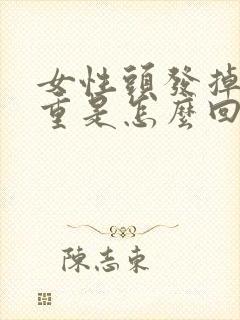 女性頭發掉
重是怎麼回
陳志東